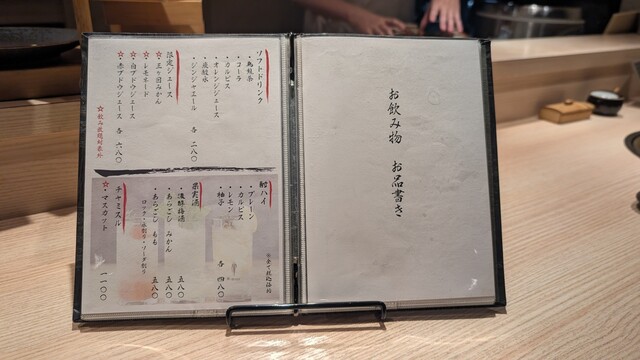 お飲み物 お品書き
ソフトドリンク
・烏龍茶
・コーラ
・カルピス
・オレンジジュース
・炭酸水
・ジンジャエール 各 二八〇
限定ジュース
☆三ヶ日みかん
☆レモネード
☆白ブドウジュース
☆赤ブドウジュース 各 六八〇
☆飲み放題対象外
酎ハイ
・プレーン
・カルピス
・レモン
・柚子 各 四八〇
※全て税込価格
果実酒
・濃醇梅酒 五八〇
・あらごし みかん 五八〇
・あらごし もも 五八〇
ロック・水割り・ソーダ割り
チャミスル
☆マスカット 一一〇〇